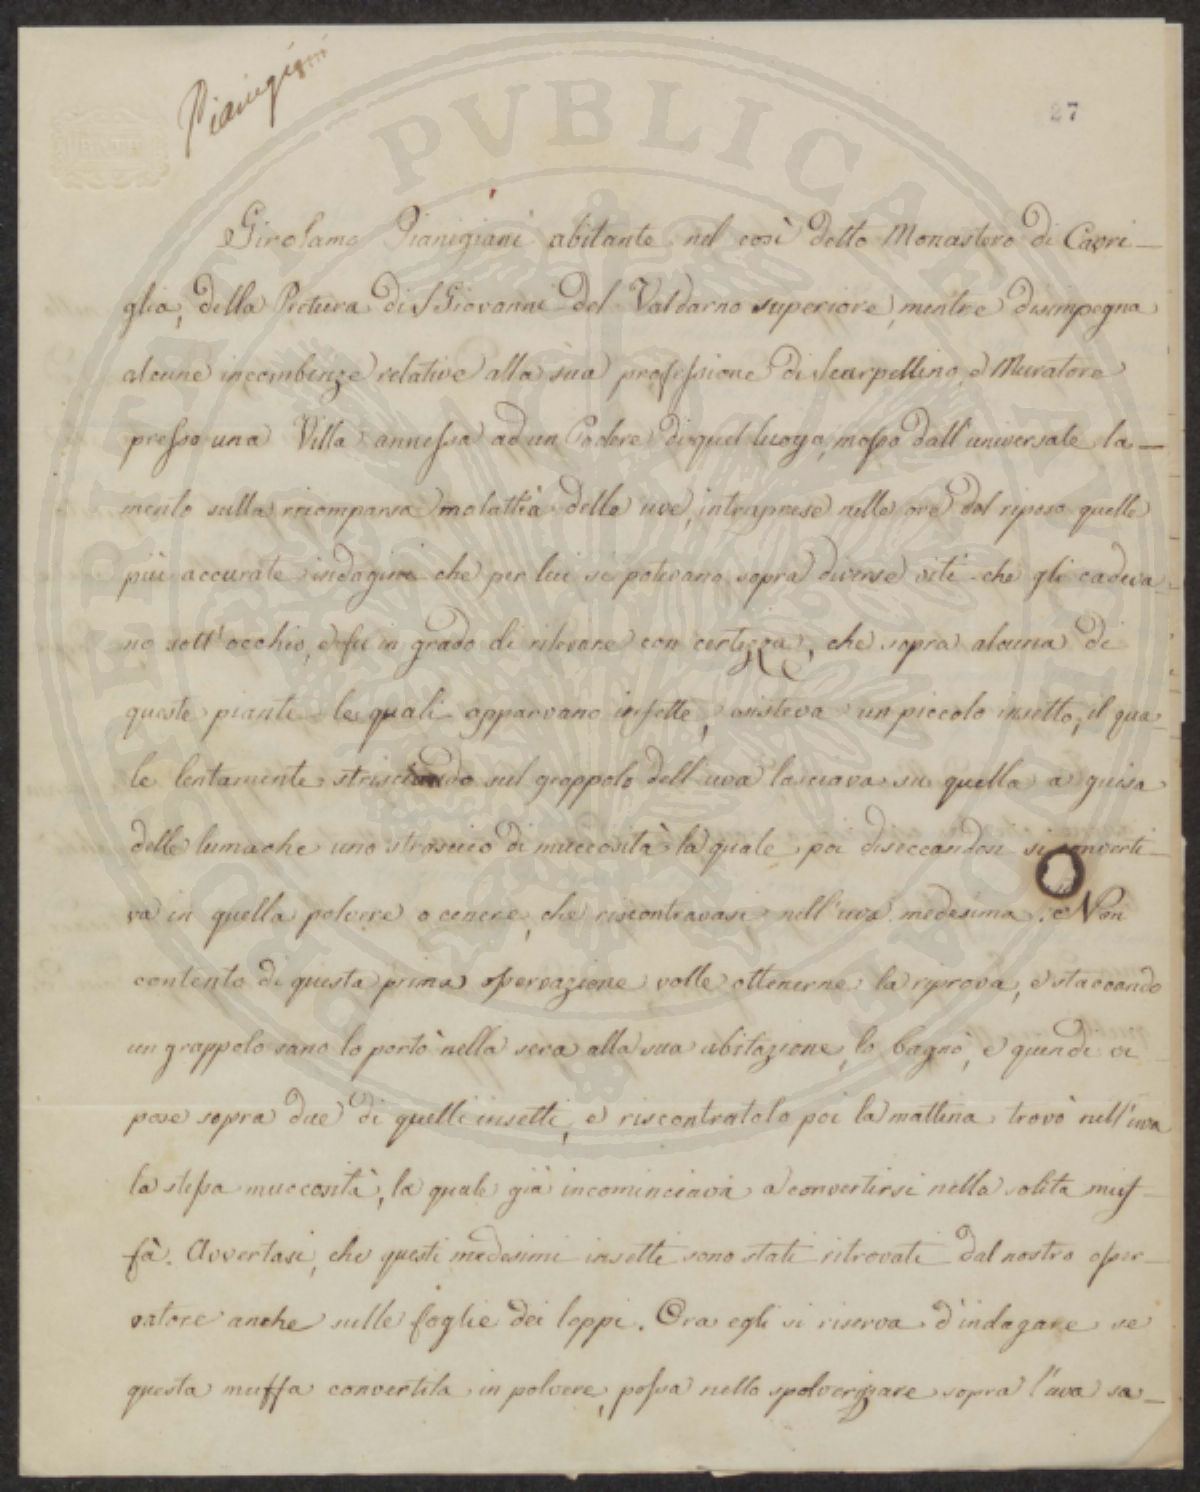 Pianigiani
27
Girolamo Pianigiani abitante nel così detto Monastero di Cavri-
glia, della Pretura di S Giovanni del Valdarno superiore, mentre disimpegna
alcune incombenze relative alla sua professione di Scarpellino, e Muratore
presso una Villa annessa ad un Podere di quel luogo, mosso dall'universale la-
mento sulla ricomparsa malattia delle uve, intraprese nelle ore del riposo quelle
più accurate indagini che per lui si potevano sopra diverse viti che gli cadeva-
no sott'occhio, e fu in grado di rilevare con certezza, che sopra alcuna di
queste piante le quali apparvano infette, esisteva un piccolo insetto, il qua-
le lentamente strisciando sul grappolo dell'uva lasciava su quella a guisa
delle lumache uno strascico di muccosità la quale poi diseccandosi si converti-
va in quella polvere o cenere, che riscontravasi nell'uva medesima. Non
contento di questa prima osservazione volle ottenerne la riprova, e staccando
un grappolo sano lo portò nella sera alla sua abitazione, lo bagnò, e quindi vi
pose sopra due di quelli insetti, e riscontratolo poi la mattina trovò nell'uva
la stessa muccosità, la quale già incominciava a convertirsi nella solita muf-
fa. Avvertasi, che questi medesimi insetti sono stati ritrovati dal nostro osser-
vatore anche sulle foglie dei loppi. Ora egli si riserva d'indagare se
questa muffa convertita in polvere, possa nello spolverizzare sopra l'uva sa-
PVBLICAE
VERITATI